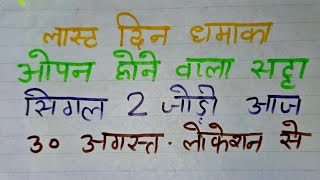 लास्ट दिन धमाका
ओपन होने वाला सट्टा
सिगल 2 जोड़ी आज
30 अगस्त. लोकेशन से